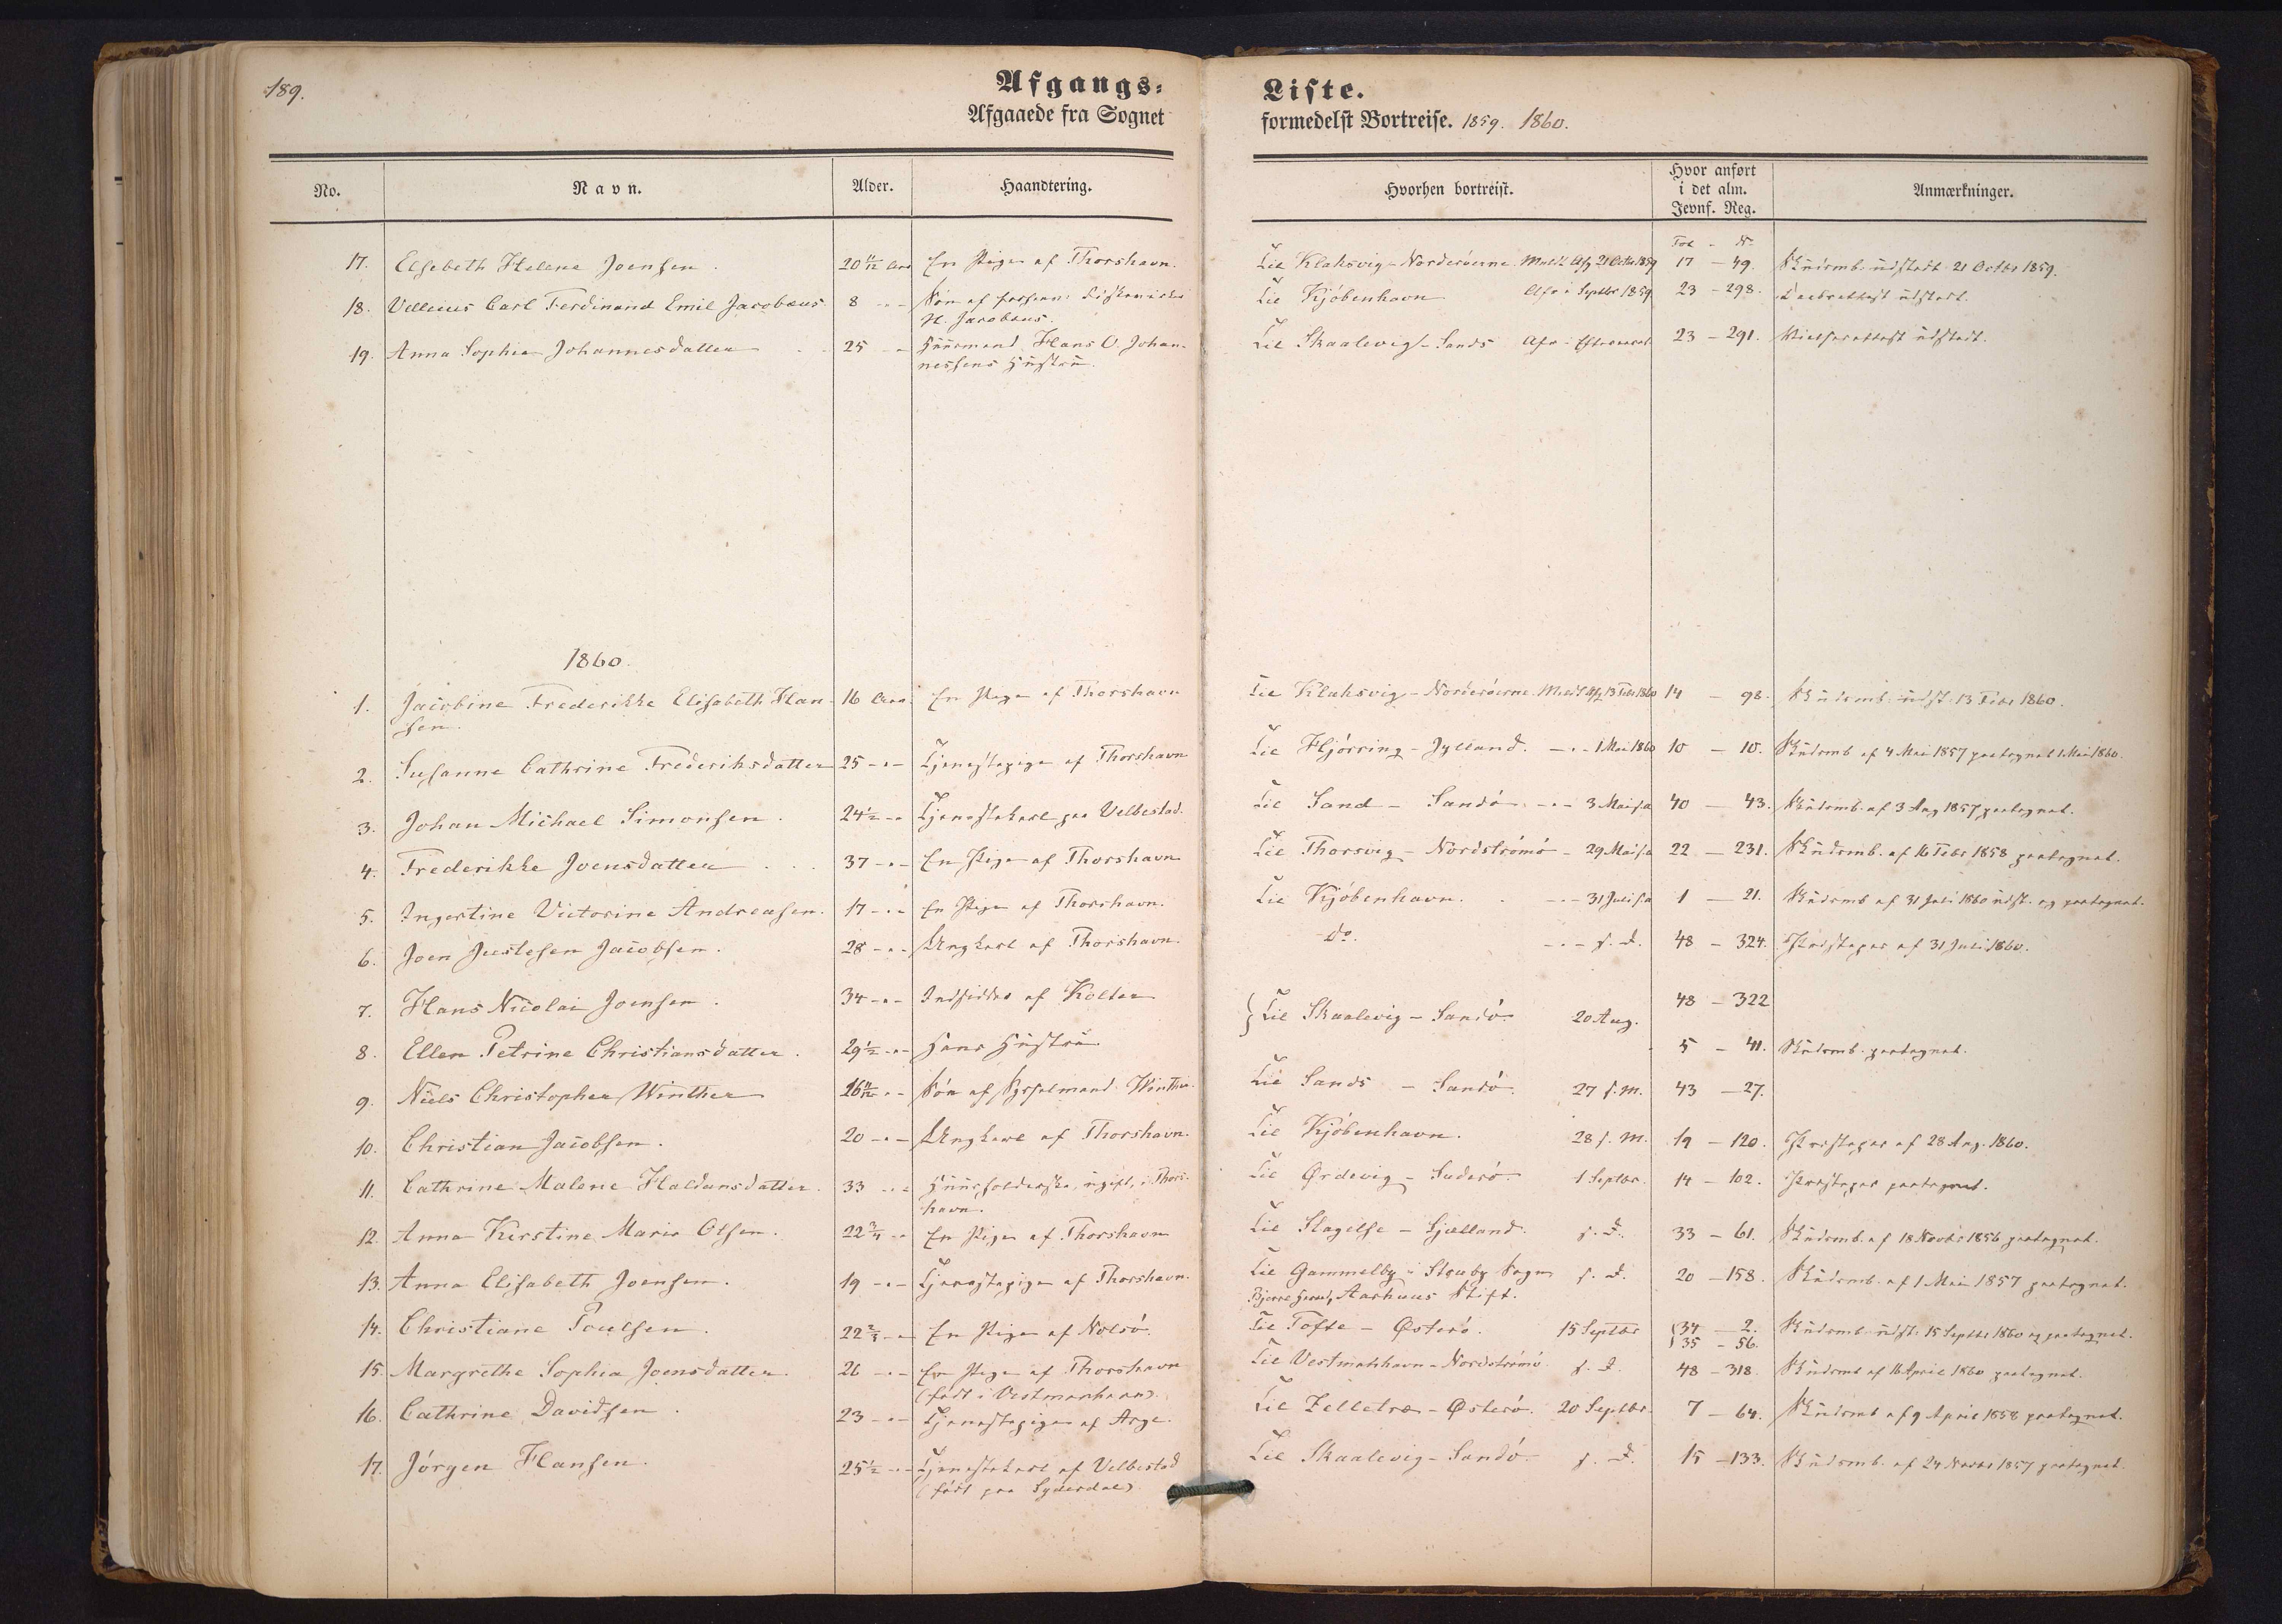 189.
Afgangs-
Liste.
Afgaaede fra Sognet
formedelst Bortreise. 1859. 1860.
No. Navn. Alder. Haandtering. Hvorhen bortreist. Hvor anført i det alm. Jevnf. Reg. Anmærkninger.
Fol - N
17. Elsebeth Helene Joensen. 20 11/12 Aar En Pige af Thorshavn. Til Klaksvig - Norderöerne. Meldt Afg 21 Octbr 1859 17 - 49. Skudsmb. udstedt 21 Octbr 1859.
18. Vellius Carl Ferdinand Emil Jacobæus 8 - " - Søn af
H. Jacobæus. Til Kjöbenhavn i Septbr 1859 23 - 298. udstedt.
19. Anna Sophia Johannesdatter 25 - " - Huusmand Hans O. Johan-
nessens Hustru. Til Skaalevig - Sands 23 - 291. udstedt.
1860.
1. Jacobine Frederikke Elisabeth Han-
sen. 16 Aar. En Pige af Thorshavn Til Klaksvig - Norderöerne. Meldt Afg 13 Febr 1860 14 - 98. Skudsmb. udst. 13 Febr 1860.
2. Susanne Cathrine Frederiksdatter 25 - " - Tjenestepige af Thorshavn Til Hjörring - Jylland. - " - 1 Mai 1860 10 - 10. Skudsmb af 4 Mai 1857 paategnet 1 Mai 1860.
3. Johan Michael Simonsen. 24 1/2 - " Tjenestekarl paa Velbestad. Til Sand - Sandö - " - 3 Mai s.a 40 - 43. Skudsmb. af 3 Aug 1857 paategnet.
4. Frederikke Joensdatter 37 - " - En Pige af Thorshavn Til Thorsvig - Nordströmö - 29 Mai s.a 22 - 231. Skudsmb. af 16 Febr 1858 paategnet.
5. Ingertine Victorine Andreasen. 17 - " - En Pige af Thorshavn. Til Kjöbenhavn. - " - 31 Juli s.a 1 - 21. Skudsmb af 31 Juli 1860 udst. og paategnet.
6. Joen Justesen Jacobsen. 28 - " - Ungkarl af Thorshavn. do. - " - s. D. 48 - 324. af 31 Juli 1860.
7. Hans Nicolai Joensen. 34 - " - Indsidder af Kolter } Til Skaalevig - Sandö. 20 Aug. 48 - 322
8. Ellen Petrine Christiansdatter. 29 1/2 - " - Hans Hustru 5 - 41. Skudsmb. paategnet.
9. Niels Christopher Winther 16 11/12 - " - Søn af Sysselmand Winther. Til Sands - Sandö. 27 s.M. 43 - 27.
10. Christian Jacobsen. 20 - " - Ungkarl af Thorshavn. Til Kjöbenhavn. 28 s. M. 19 - 120. af 28 Aug. 1860.
11. Cathrine Malene Haldansdatter. 33 - " - Huusholderske, ugift, i Thors-
havn. Til Ördevig - Suderö 1 Septbr. 14 - 102. paategnet.
12. Anna Kirstine Marie Olsen. 22 3/4 - " En Pige af Thorshavn Til Slagelse - Sjælland. s. D. 33 - 61. Skudsmb. af 18 Novbr 1856 paategnet.
13. Anna Elisabeth Joensen. 19 - " - Tjenestepige af Thorshavn. Til Gammelby i Stouby Sogn s. D. 20 - 158. Skudsmb. af 1 Mai 1857 paategnet.
Bjerre Herred, Aarhuus Stift.
14. Christiane Poulsen. 22 2/3 - " En Pige af Nolsö. Til Tofte - Österö. 15 Septbr {34 - 2. Skudsmb. udst. 15 Septbr 1860 og paategnet.
}35 - 56.
15. Margrethe Sophia Joensdatter. 26 - " - En Pige af Thorshavn
(født i Vestmanhavn). Til Vestmanhavn - Nordströmö s. D. 48 - 318. Skudsmb af 16 April 1860 paategnet.
16. Cathrine Davidsen. 23 - " - Tjenestepige af Arge. Til Zelletræ - Österö. 20 Septbr. 7 - 64. Skudsmb af 9 April 1858 paategnet.
17. Jörgen Hansen. 25 1/2 - " - Tjenestekarl af Velbestad
(født paa Syderdal) Til Skaalevig - Sandö s. D. 15 - 133. Skudsmb. af 24 Novbr 1857 paategnet.